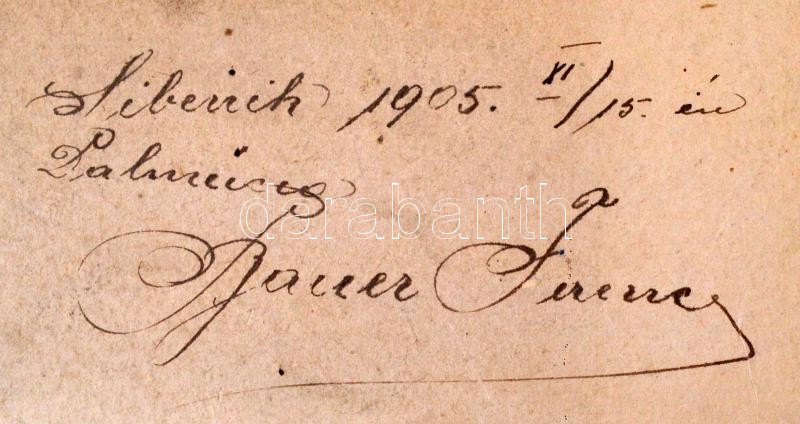 Sibenik 1905. XI/15. én
Dalmácia
Bauer Ferenc
darabanth